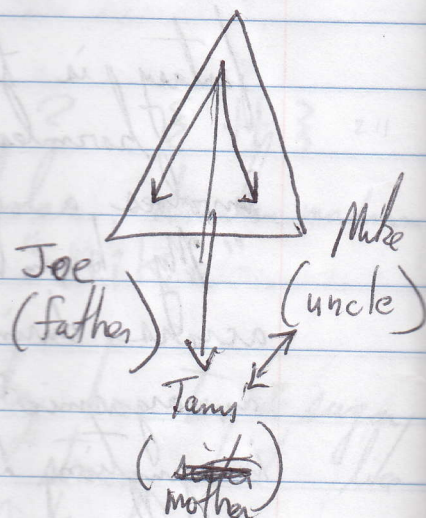 Joe
(father)
Mike
(uncle)
(mother)